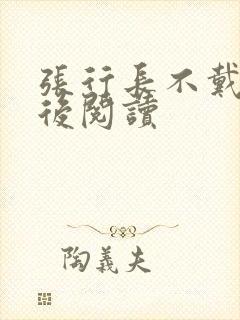 張行長不戴
後閱讀
陶義夫